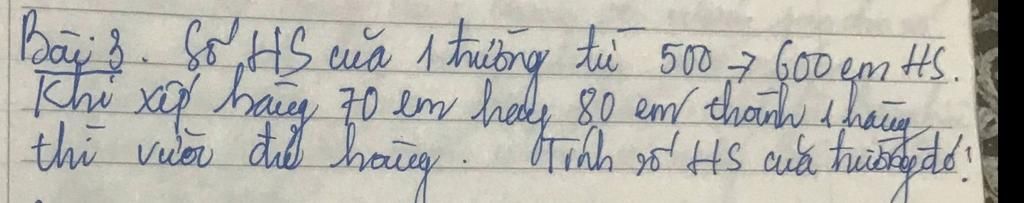 Bài 3. Số HS của 1 trường từ 500 → 600 em HS.
Khi xếp hàng 70 em hay 80 em thành 1 hàng
thì vừa đủ hàng. Tính số HS của trường đó!